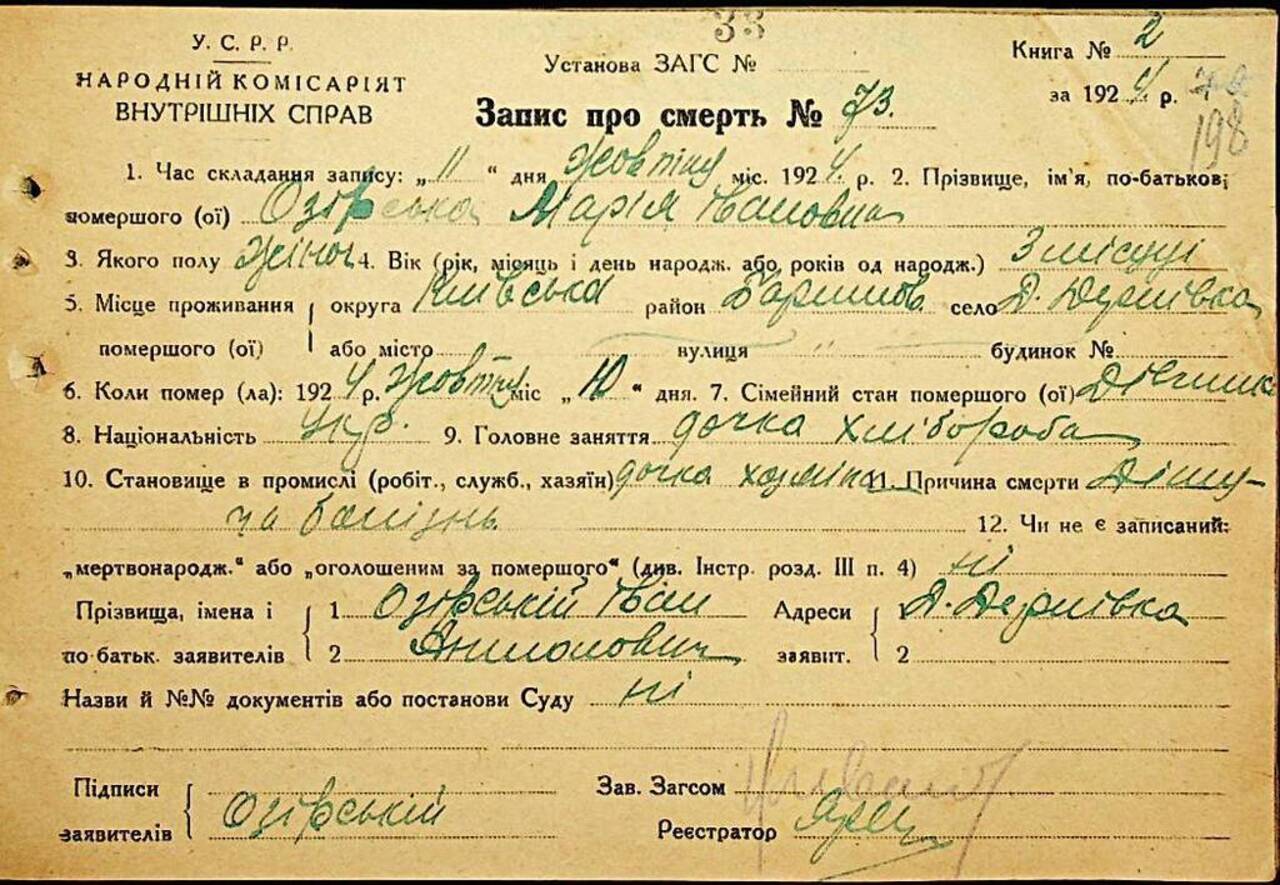 33
У. С. Р. Р.
НАРОДНІЙ КОМІСАРІЯТ
ВНУТРІШНІХ СПРАВ
Установа ЗАГС №
Запис про смерть № 73.
Книга № 2
за 1924 р.
198
1. Час складання запису: „11“ дня Жовтня міс. 1924 р. 2. Прізвище, ім'я, по-батькові
помершого (ої) Озірська Марія Івановна
3. Якого полу жіноч 4. Вік (рік, місяць і день народж. або років од народж.) 3 місуці
5. Місце проживання округа Київська район Баришов. село Д. Дернівка
помершого (ої) або місто вулиця „ будинок №
6. Коли помер (ла): 1924 р. Жовтня міс „10“ дня. 7. Сімейний стан помершого (ої) Дівчинка
8. Національність Укр. 9. Головне заняття дочка хлібороба
10. Становище в промислі (робіт., служб., хазяїн) дочка хазяіна 11. Причина смерти Дітя-
ча болізнь 12. Чи не є записаний:
„мертвонародж.“ або „оголошеним за помершого“ (див. Інстр. розд. III п. 4) ні
Прізвища, імена і 1 Озірській Іван Адреси 1 Д. Дернівка
по батьк. заявителів 2 Антонович заявит. 2
Назви й №№ документів або постанови Суду ні
Підписи Зав. Загсом
заявителів Озірській Реєстратор